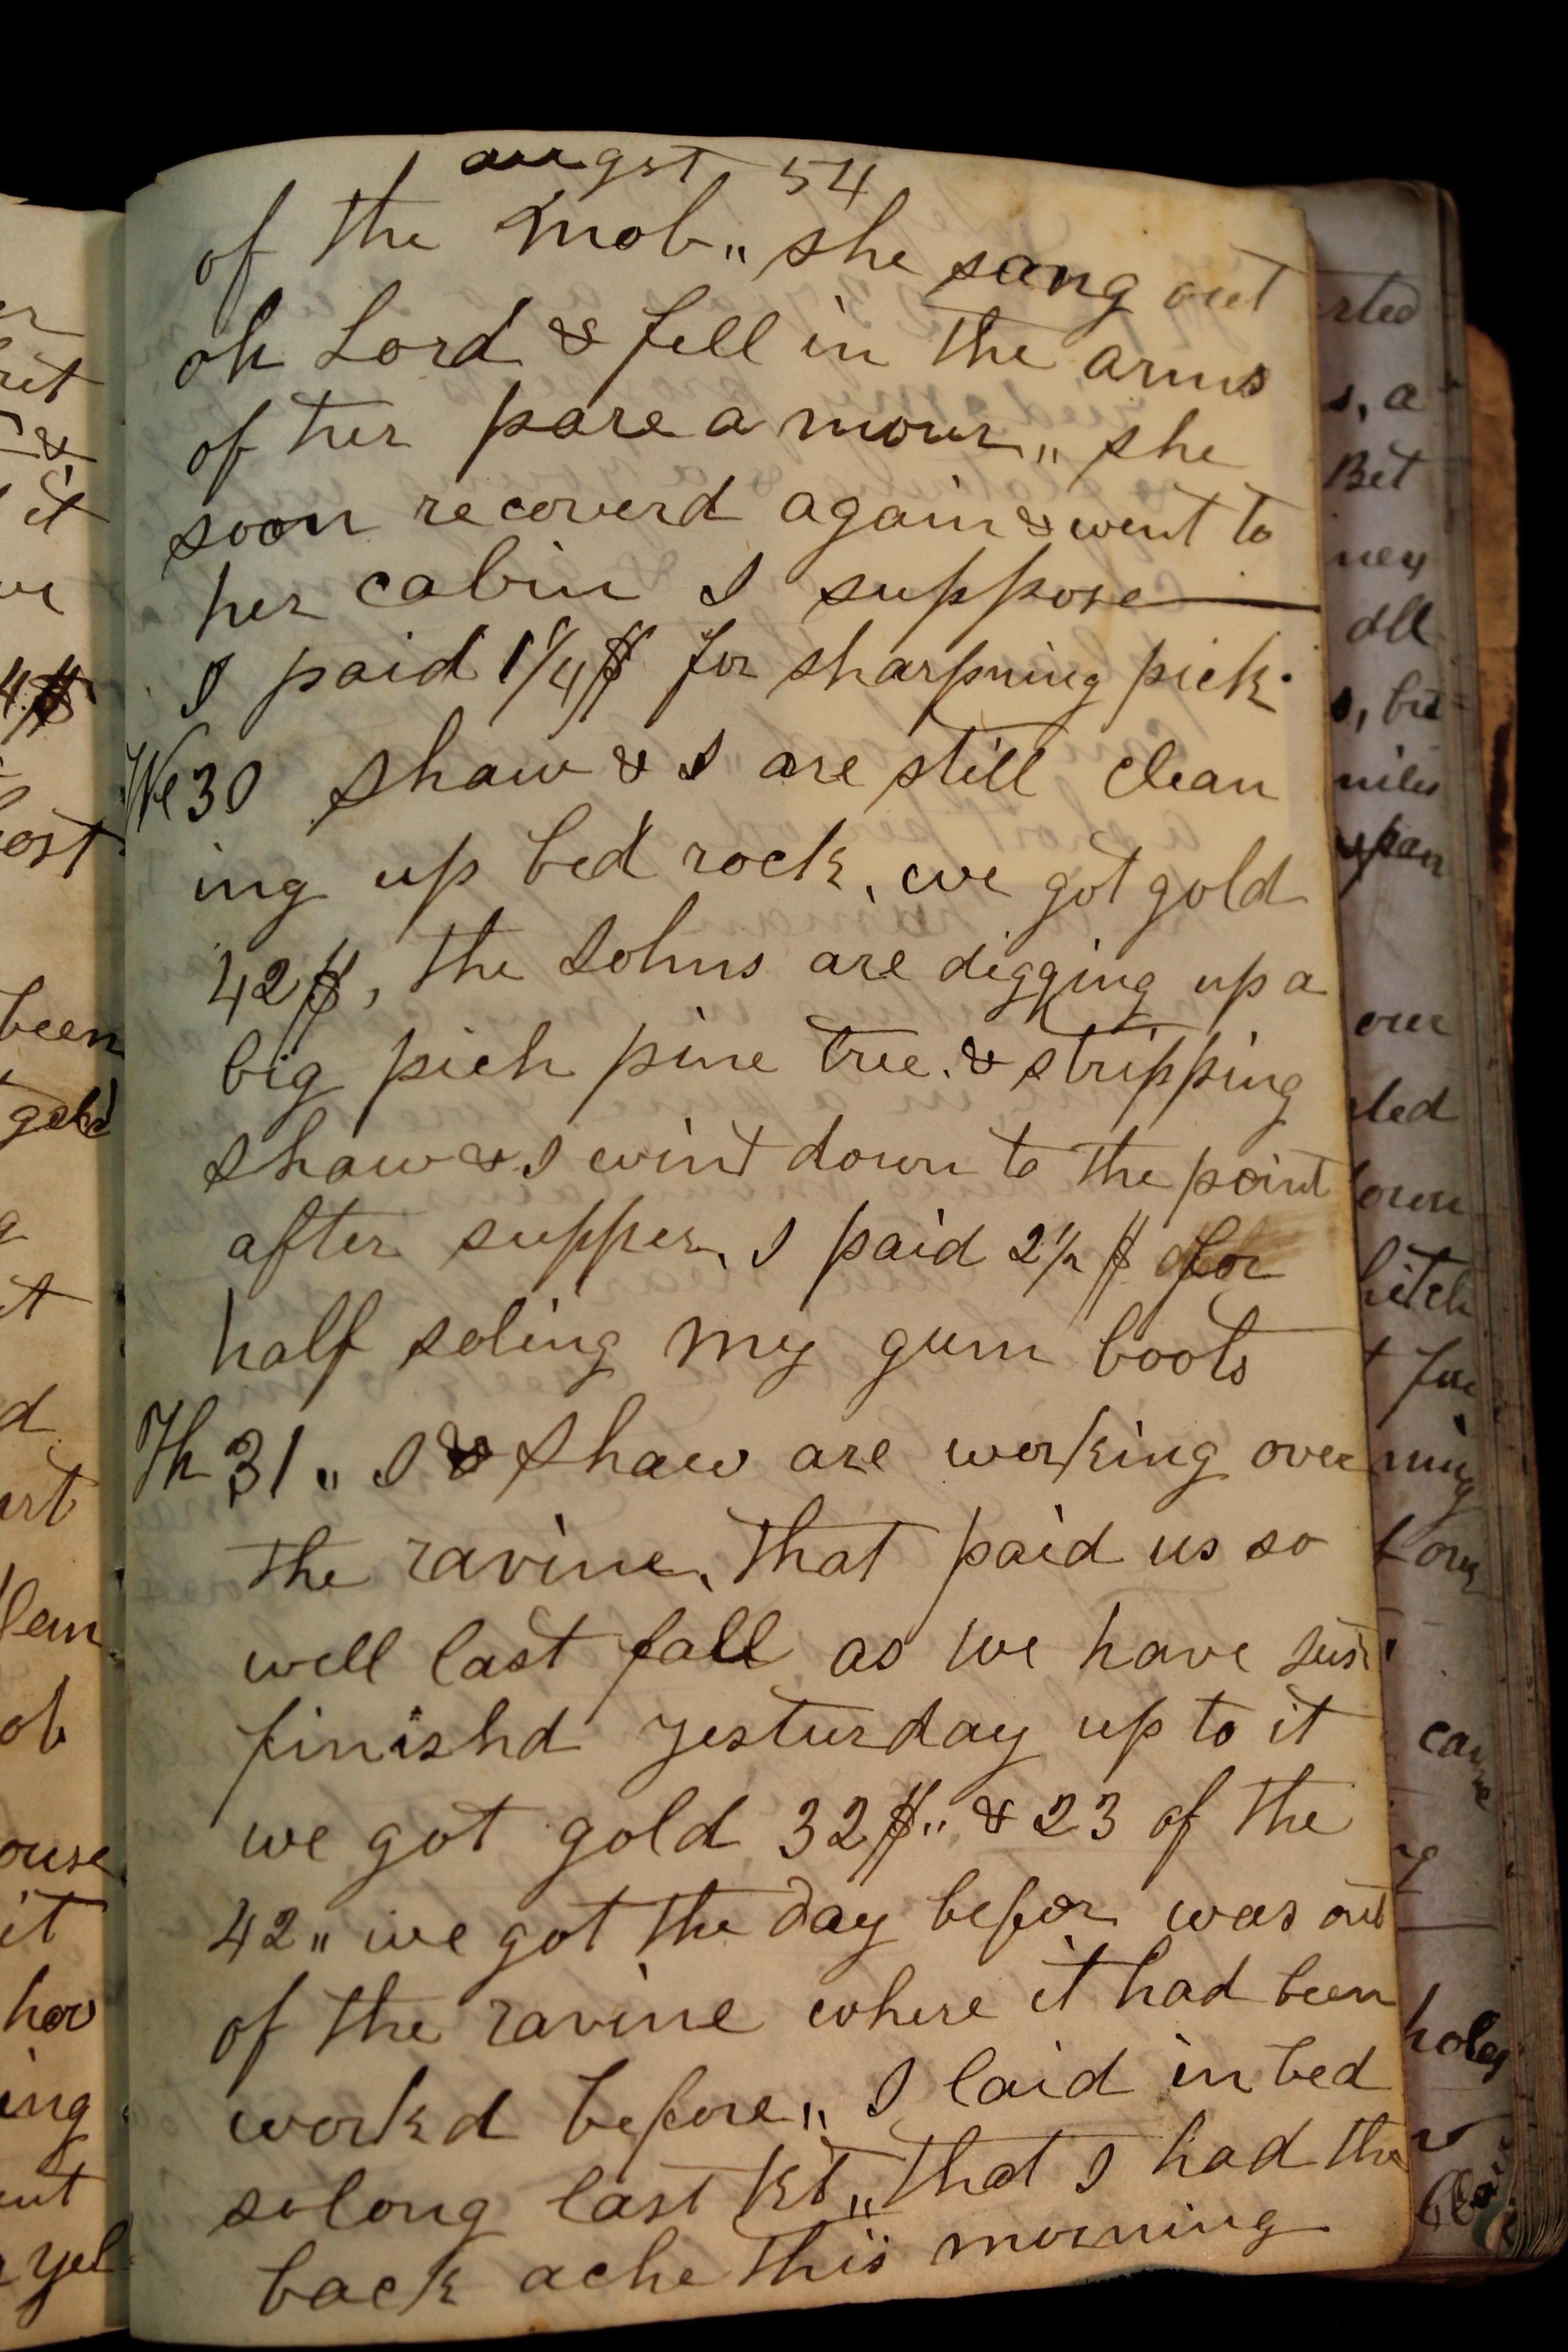 augst 54
of the mob,, she sang out
oh Lord & fell in the arms
of her pareamour,, she
soon recoverd again & went to
her cabin I suppose
I paid 1 1/4 $ for sharpning pick.
We 30 Shaw & I are still clean
ing up bed rock, we got gold
42$, the Johns are digging up a
big pich pine tree. & stripping
Shaw & I wint down to the point
after supper, I paid 2 1/2 $ for
half soling my gum boots
Th 31 ,, I & Shaw are working over
the ravine, that paid us so
well last fall as we have just
finishd yesturday up to it
we got gold 32$,, & 23 of the
42,, we got the day befor was out
of the ravine where it had been
workd before,, I laid in bed
solong last ,, that I had the
back ache this morning